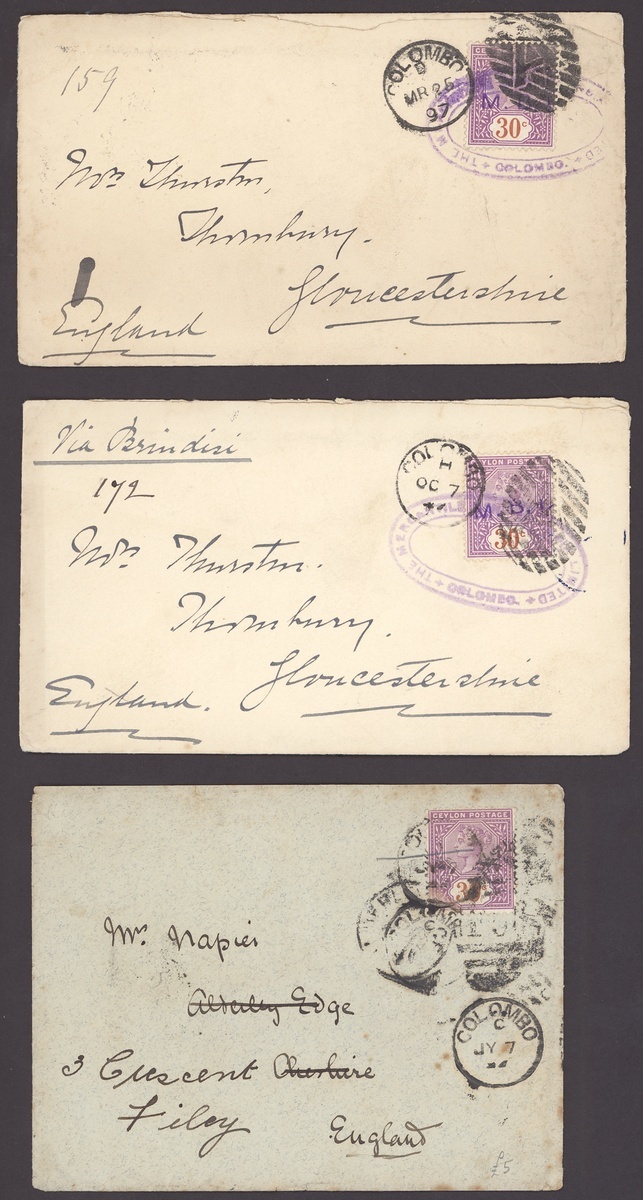 159
COLOMBO
B
MR 25
97
CEYLON
M.B.
30c
THE M
COLOMBO.
Mrs Thurston,
Thornbury.
Gloucestershire
England
Via Brindisi
172
COLOMBO
H
OC 7
CEYLON POSTAGE
M.B.
30c
THE MERCANTILE
LIMITED
COLOMBO.
Mrs Thurston.
Thornbury.
Gloucestershire
England.
CEYLON POSTAGE
COLOMBO
C
JY 7
Mrs Napier
Alderley Edge
3 Crescent Cheshire
Filey
England
£5